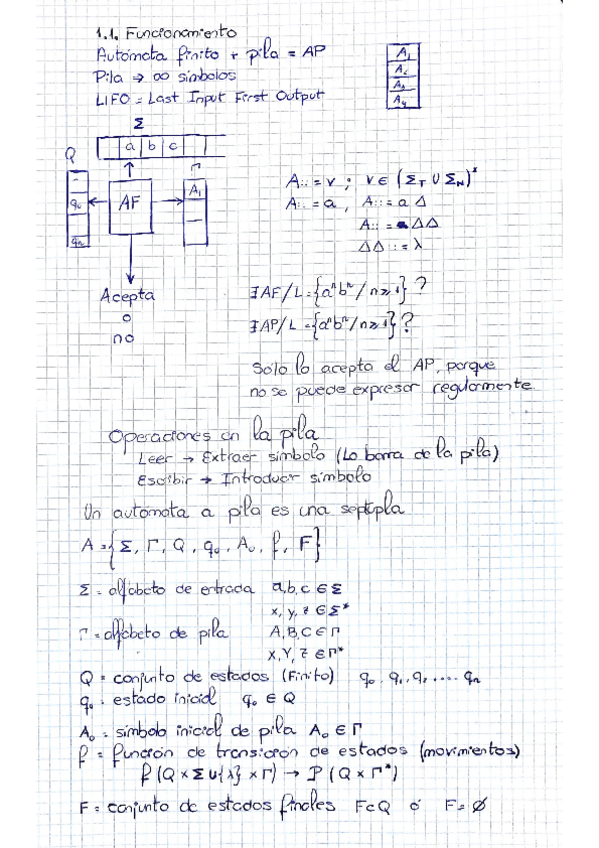 1.1. Funcionamiento
Autómata finito + pila = AP
Pila → ∞ símbolos
LIFO = Last Input First Output
A₁
A₂
A₃
A₄
Σ
Q
a b c
Γ
q₀
AF
A₁
qₙ
Acepta
o
no
A::=v ; v ∈ (Σ_T ∪ Σ_N)*
A::=a , A::=a Δ
A::= ΔΔ
ΔΔ ::= λ
∃AF/L={aⁿbⁿ/n≥1}?
∃AP/L={aⁿbⁿ/n≥1}?
Solo lo acepta el AP, porque
no se puede expresar regularmente
Operaciones en la pila
Leer → Extraer símbolo (Lo borra de la pila)
Escribir → Introducir símbolo
Un autómata a pila es una septupla
A = {Σ, Γ, Q, q₀, A₀, f, F}
Σ = alfabeto de entrada a,b,c ∈ Σ
x, y, z ∈ Σ*
Γ = alfabeto de pila A,B,C ∈ Γ
X,Y,Z ∈ Γ*
Q = conjunto de estados (Finito) q₀, q₁, q₂ .... qₙ
q₀ = estado inicial q₀ ∈ Q
A₀ = símbolo inicial de pila A₀ ∈ Γ
f = función de transición de estados (movimientos)
f (Q × Σ∪{λ} × Γ) → P (Q × Γ*)
F = conjunto de estados finales F⊂Q ó F=∅